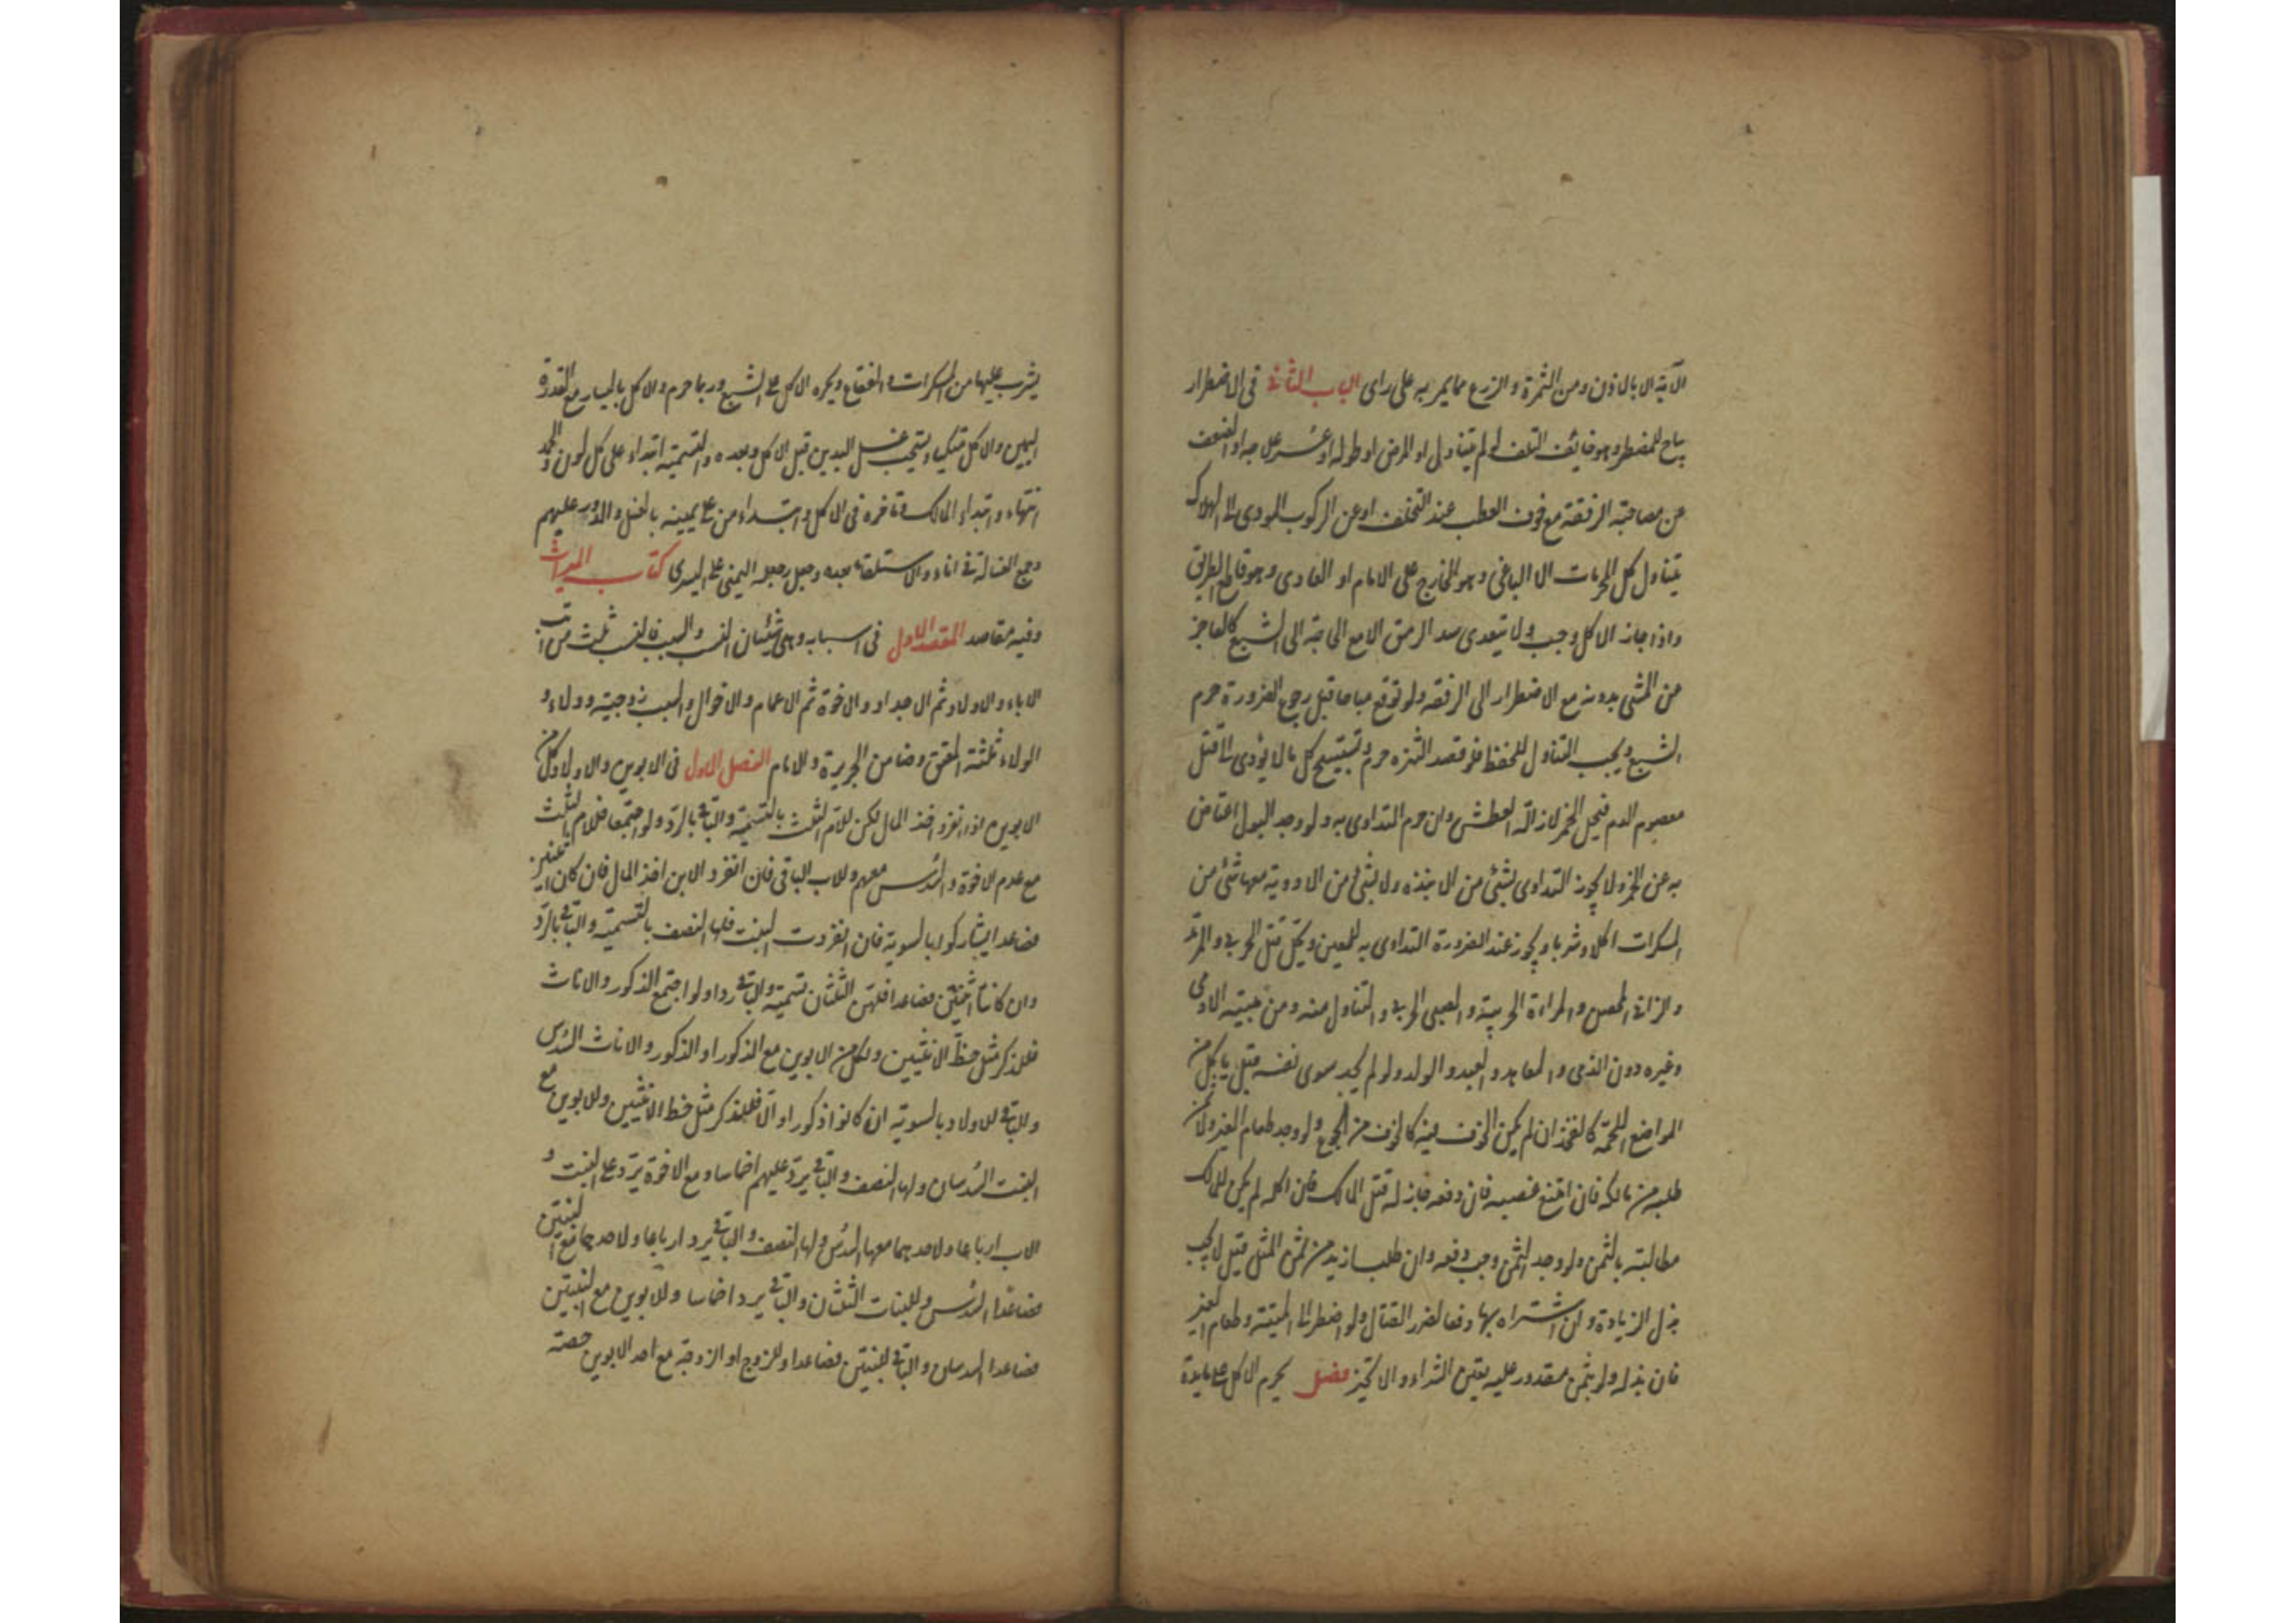 الآية الا بالاذن ومن الثمرة والزرع مما يمر به على راى الباب الثانى فى الاضطرار
يباح للمضطر وهو خايف التلف لو لم يتناول او المرض او طوله او عسر علاجه او الضعف
عن مصاحبة الرفقة مع خوف العطب عند التخلف او عن الركوب المودى الى الهلاك
يتناول كل المحرمات الا الباغى وهو الخارج على الامام او العادى وهو قاطع الطريق
واذا جاز الاكل وجب ولا يتعدى سد الرمق الا مع الحاجة الى الشبع كالعاجز
عن المشى بدونه مع الاضطرار الى الرفقة ولو توقع مباحا قبل رجوع الضرورة حرم
الشبع ويجب التناول للحفظ فلو قصد التنزه حرم ويستبيح كل ما لا يؤدى الى قتل
معصوم الدم فيحل الخمر لازالة العطش وان حرم التداوى به ولو وجد البول اعتاض
به عن الخمر ولا يجوز التداوى بشئ من الانبذة ولا بشئ من الادوية معها شئ من
المسكرات اكلا وشربا ويجوز عند الضرورة التداوى به للعين ويحل قتل الحربى والمرتد
والزانى المحصن والمراءة الحربية والصبى الحربى والتناول منه ومن ميتة الآدمى
وغيره دون الذمى والمعاهد والعبد والولد ولو لم يجد سوى نفسه قيل ياكل من
المواضع اللحمة كالفخذ ان لم يكن الخوف فيه كالخوف من الجوع ولو وجد طعام الغير ولا ثمن
طلبه من مالكه فان امتنع غصبه فان دفعه جاز له قتل المالك فان اكله لم يكن للمالك
مطالبته بالثمن ولو وجد الثمن وجب دفعه وان طلب ازيد من ثمن المثل قيل لا يجب
بذل الزيادة وان اشتراه بها دفعا لضرر القتال ولو اضطر الى الميتة وطعام الغير
فان بذله ولو بثمن مقدور عليه تعين الشراء والا تخير فصل يحرم الاكل على مايدة
يشرب عليها من المسكرات والفقاع ويكره الاكل على الشبع وربما حرم والاكل باليسار مع القدرة
اليمين والاكل متكيا ويستحب غسل اليدين قبل الاكل وبعده والتسمية ابتداء على كل لون والحمد
انتهاء وابتداء المالك وتاخره فى الاكل وابتداء من على يمينه بالغسل والدور عليهم
وجمع الغسالة فى اناء والاستلقاء بعده وجعل رجله اليمنى على اليسرى كتاب الميراث
وفيه مقاصد المقصد الاول فى اسبابه وهى شيئان النسب والسبب فالنسب ثلث مراتب
الاباء والاولاد ثم الاجداد والاخوة ثم الاعمام والاخوال والسبب زوجية وولاء و
الولاء ثلثة المعتق وضامن الجريرة والامام الفصل الاول فى الابوين والاولاد لكل من
الابوين اذا انفرد اخذ المال لكن للام الثلث بالتسمية والباقى بالرد ولو اجتمعا فللام الثلث
مع عدم الاخوة والسدس معهم وللاب الباقى فان انفرد الابن اخذ المال فان كان اثنين
فصاعدا تشاركوا بالسوية فان انفردت البنت فلها النصف بالتسمية والباقى بالرد
وان كانتا اثنتين فصاعدا فلهن الثلثان تسمية والباقى ردا ولو اجتمع الذكور والاناث
فللذكر مثل حظ الانثيين ولكل من الابوين مع الذكور او الذكور والاناث السدس
والباقى للاولاد بالسوية ان كانوا ذكورا والا فللذكر مثل حظ الانثيين وللابوين مع
البنت السدسان ولها النصف والباقى يرد عليهم اخماسا ومع الاخوة يرد على البنت و
الاب ارباعا ولاحدهما معها السدس ولها النصف والباقى يرد ارباعا ولاحدهما مع البنتين
فصاعدا السدس وللبنات الثلثان والباقى يرد اخماسا وللابوين مع البنتين
فصاعدا السدسان والباقى للبنتين فصاعدا وللزوج او الزوجة مع احد الابوين حصته